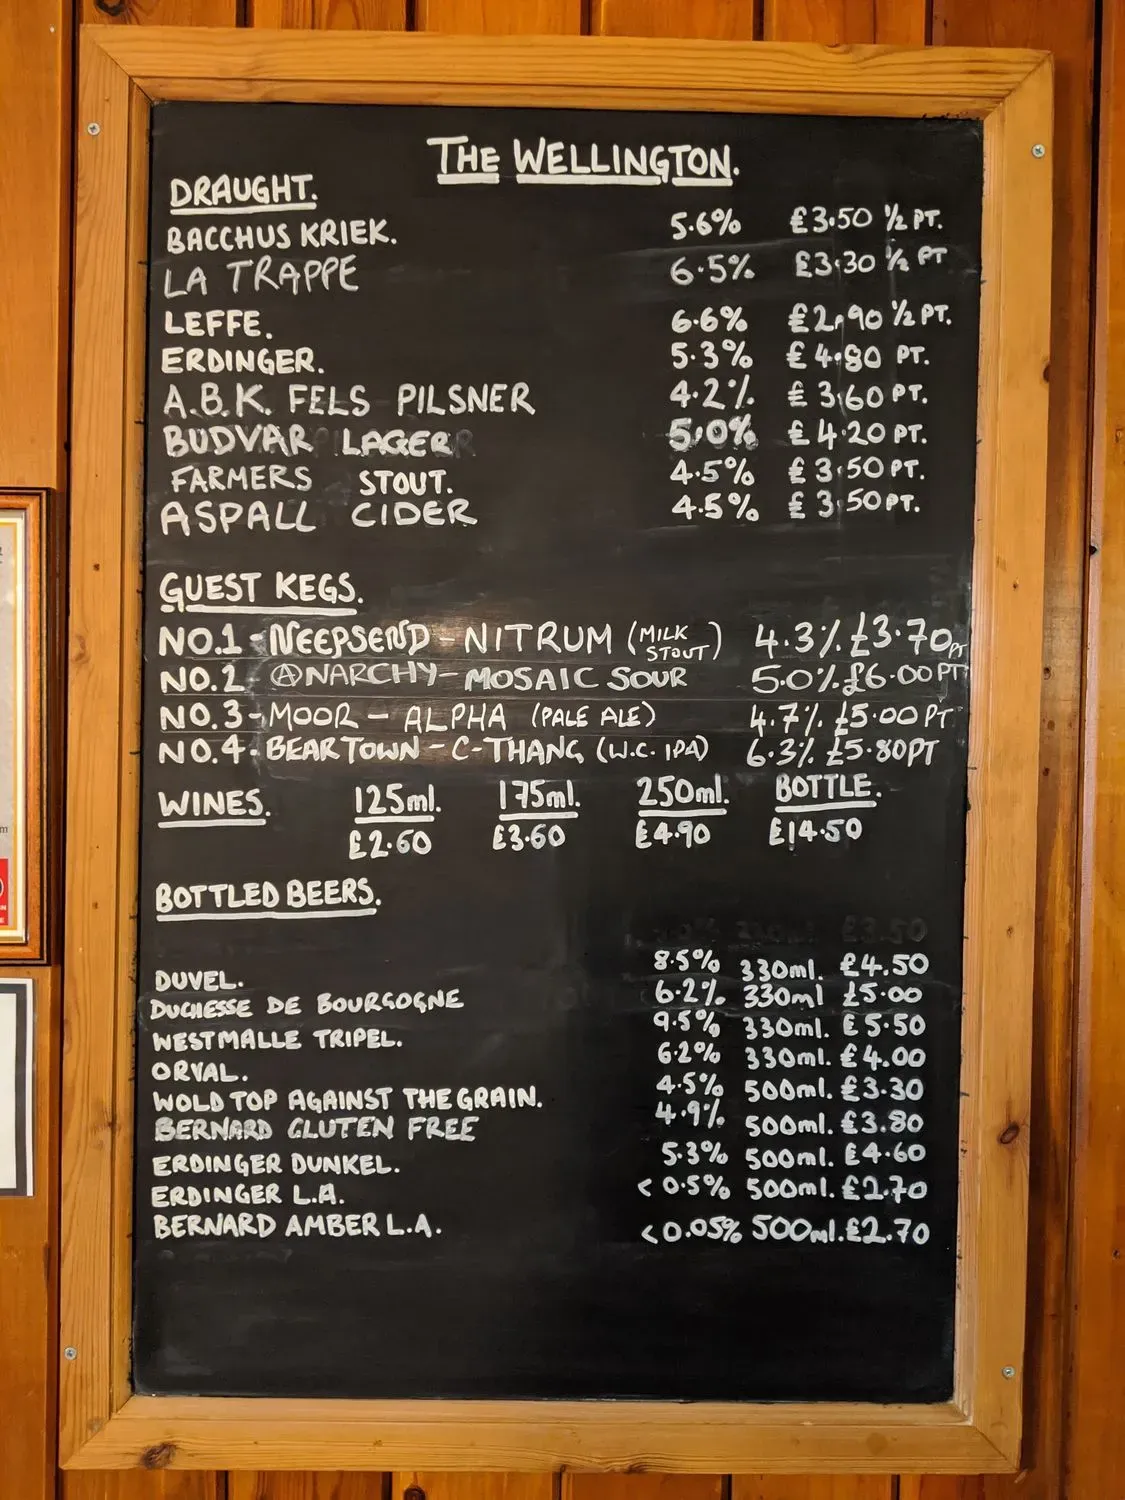 THE WELLINGTON.
DRAUGHT.
BACCHUS KRIEK. 5.6% £3.50 ½ PT.
LA TRAPPE 6.5% £3.30 ½ PT
LEFFE. 6.6% £2.90 ½ PT.
ERDINGER. 5.3% £4.80 PT.
A.B.K. FELS PILSNER 4.2% £3.60 PT.
BUDVAR LAGER 5.0% £4.20 PT.
FARMERS STOUT. 4.5% £3.50 PT.
ASPALL CIDER 4.5% £3.50 PT.
GUEST KEGS.
NO.1 - NEEPSEND - NITRUM (MILK STOUT) 4.3% £3.70 PT
NO.2 - ANARCHY - MOSAIC SOUR 5.0% £6.00 PT
NO.3 - MOOR - ALPHA (PALE ALE) 4.7% £5.00 PT
NO.4 - BEARTOWN - C-THANG (W.C. IPA) 6.3% £5.80 PT
WINES. 125ml. 175ml. 250ml. BOTTLE.
£2.60 £3.60 £4.90 £14.50
BOTTLED BEERS.
£3.50
DUVEL. 8.5% 330ml. £4.50
DUCHESSE DE BOURGOGNE 6.2% 330ml £5.00
WESTMALLE TRIPEL. 9.5% 330ml. £5.50
ORVAL. 6.2% 330ml. £4.00
WOLD TOP AGAINST THE GRAIN. 4.5% 500ml. £3.30
BERNARD GLUTEN FREE 4.9% 500ml. £3.80
ERDINGER DUNKEL. 5.3% 500ml. £4.60
ERDINGER L.A. < 0.5% 500ml. £2.70
BERNARD AMBER L.A. < 0.05% 500ml. £2.70